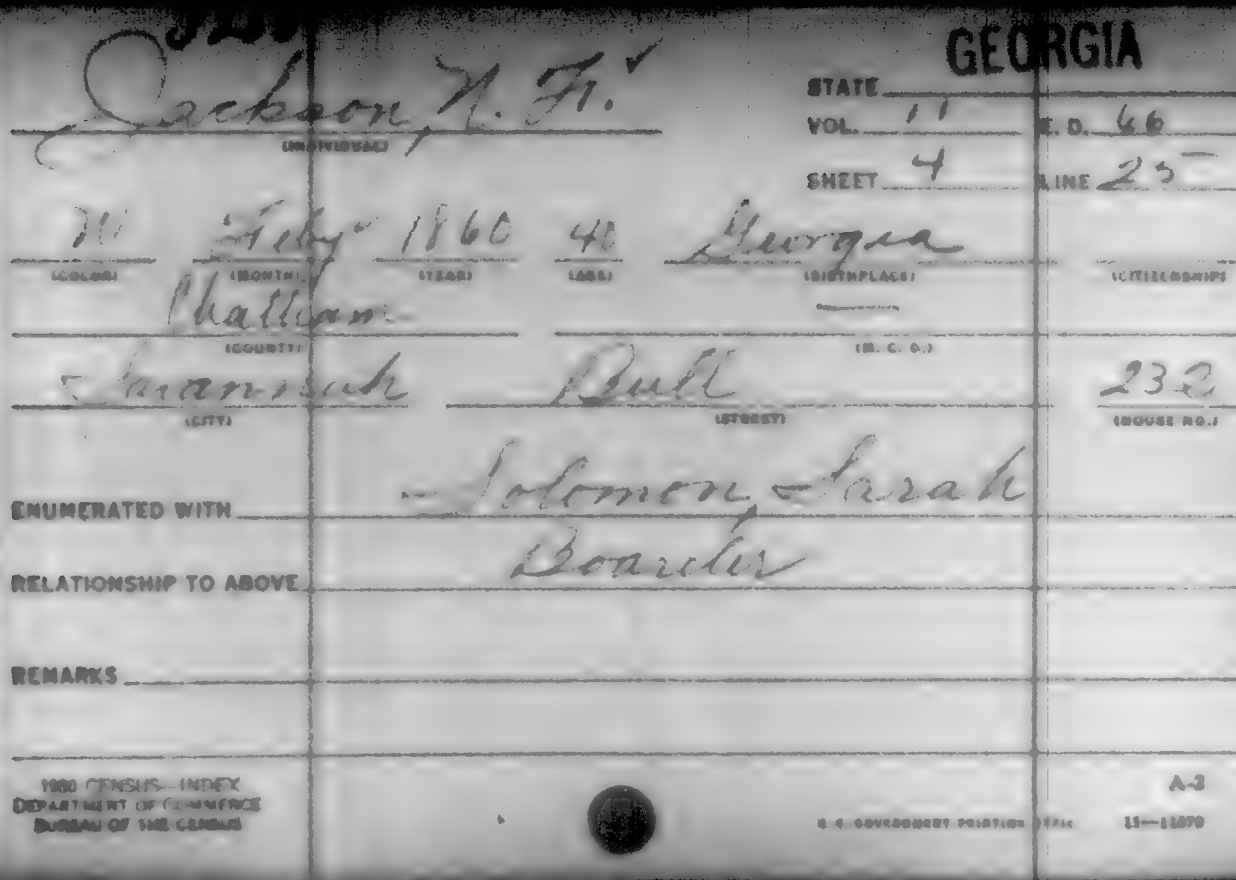 GEORGIA
Jackson, N. Fr.
STATE
(INDIVIDUAL)
VOL. 11 E. D. 66
SHEET 4 LINE 25
W Feby 1860 40 Georgia
(COLOR) (MONTH) (YEAR) (AGE) (BIRTHPLACE) (CITIZENSHIP)
Chatham —
(COUNTY) (M. C. D.)
Savannah Bull 232
(CITY) (STREET) (HOUSE NO.)
ENUMERATED WITH Solomon, Sarah
RELATIONSHIP TO ABOVE Boarder
REMARKS
1900 CENSUS—INDEX
DEPARTMENT OF COMMERCE
BUREAU OF THE CENSUS
A-3
U. S. GOVERNMENT PRINTING OFFICE 11—11070